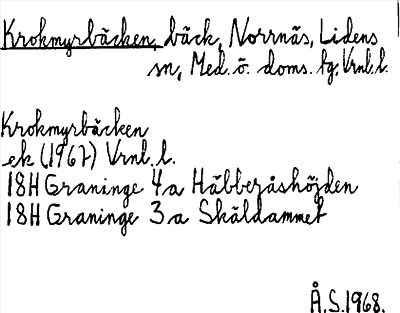 Krokmyrbäcken, bäck, Norrnäs, Lidens
sn, Med. ö. doms. fg, Vrnl. l.
Krokmyrbäcken
ek (1967) Vrnl. l.
18H Graninge 4a Häbberåshöjden
18H Graninge 3a Skäldammet
Å.S. 1968.